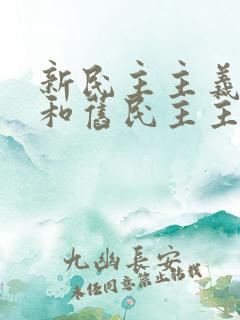 新民主主義
和舊民主主
九幽長安
未经同意禁止转载